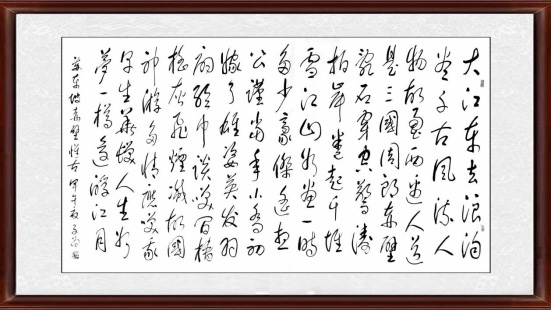 大江东去浪淘
尽千古风流人
物故垒西边人道
是三國周郎赤壁
乱石穿空惊涛
拍岸卷起千堆
雪江山如画一时
多少豪傑遥想
公谨当年小乔初
嫁了雄姿英发羽
扇纶巾谈笑间樯
橹灰飞煙滅故國
神游多情应笑我
早生华发人生如
梦一樽还酹江月
苏东坡赤壁怀古 甲午秋